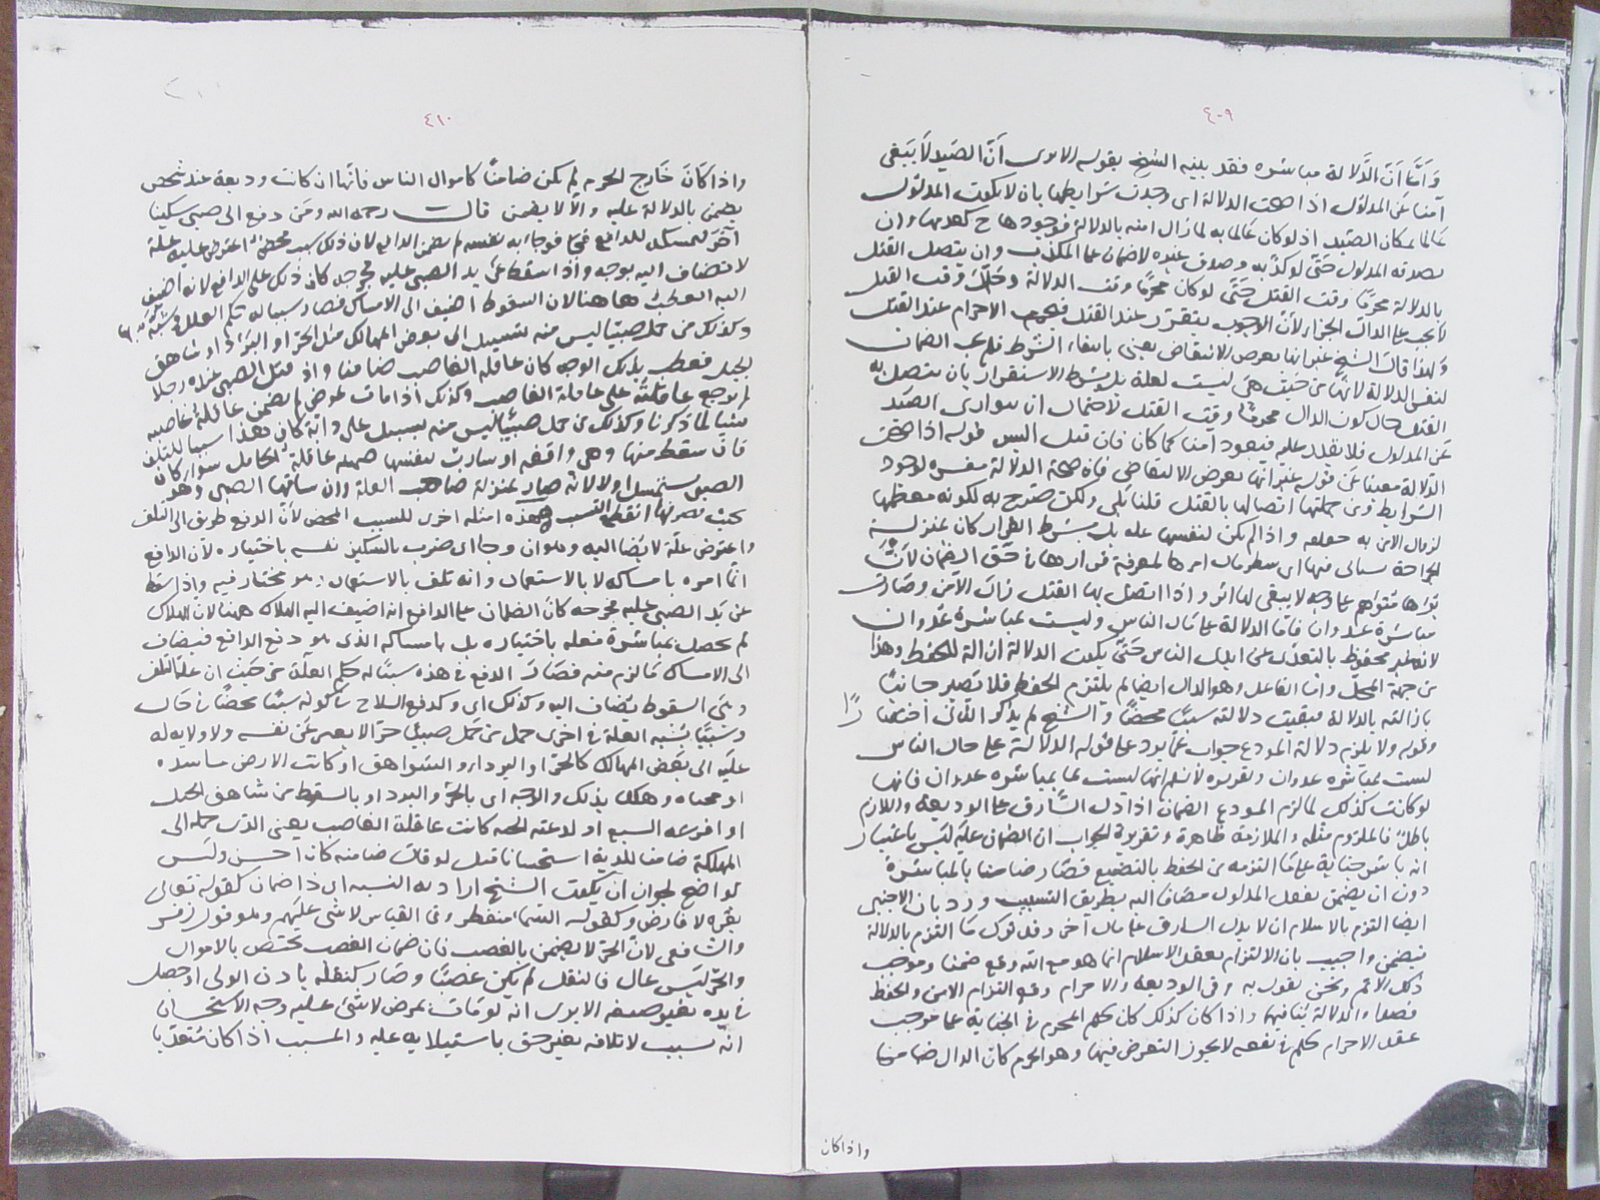 ٤٠٩
وأما أن الدلالة مباشرة فقد بينه الشيخ بقوله الا يرى أن الصيد لا يبقى
آمنا عن المدلول اذا صحت الدلالة اى وجدت شرايطها بان لا يكون المدلول
عالما بمكان الصيد اذ لو كان عالما به لما زال امنه بالدلالة فوجودها ح كعدمها وان
يصدقه المدلول حتى لو كذبه وصدق غيره لا ضمان على المكذب وان يتصل القتل
بالدلالة محرما وقت القتل حتى لو كان محرما وقت الدلالة وحل وقت القتل
لا يجب على الدال الجزاء لأن الوجوب يتقرر عند القتل
ولهذا قال الشيخ غير انها بعرض الانتقاض يعنى بانتفاء الشرط فلم يجب الضمان
لنفس الدلالة لانها من حيث هى ليست لعلة بل يشترط الاستقرار بان يتصل به
القتل حال كون الدال محرما وقت القتل لاحتمال ان يتوارى الصيد
عن المدلول فلا يقدر عليه فيعود آمنا كما كان فان قيل اليس قوله اذا صحت
الدلالة مغنيا عن قوله غير انها بعرض الانتقاض فان صحة الدلالة مفسره لوجود
الشرايط ومن جملتها اتصالها بالقتل قلنا بلى ولكن صرح به لكونه معظمها
لزوال الامن به واذا لم يكن لنفسها علة بل بشرط القرار كان بمنزلة
الجراحة يستأنى فيها اى ينتظر مآل امرها لمعرفة قرارها فى حق الضمان لأنه
لا يبقى لها اثر واذا اتصل بها القتل زال الأمن وصارت
مباشرة عدوان فاما الدلالة على مال الناس وليست بمباشرة عدوان
لانه غير محفوظ بالتعدى عن ايدى الناس حتى يكون الدلالة ازالة للحفظ وهذا
من جهة المحل واما الفاعل وهو الدال ايضا لم يلتزم الحفظ فلا تصير جانيا
بازالته بالدلالة فبقيت دلالته سببا محضا والشيخ لم يذكر الثانى اختصارا
وقوله ولا يلزم دلالة المودع جواب عما يرد على قوله الدلالة على مال الناس
ليست بمباشرة عدوان وتقريره لا نسلم انها ليست بمباشرة عدوان فانها
لو كانت كذلك لما لزم المودع الضمان اذا دل السارق على الوديعة واللازم
باطل فالملزوم مثله والملازمة ظاهرة وتقرير الجواب ان الضمان عليه ليس باعتبار
انه باشر جناية على ما التزمه من الحفظ بالتضييع فصار ضامنا بالمباشرة
دون ان يضمن بفعل المدلول مضافا اليه بطريق التسبيب ورد بان الاجنبى
ايضا التزم بالاسلام ان لا يدل السارق على مال آخر وقد ترك ما التزم بالدلالة
فيضمن واجيب بان الالتزام بعقد الاسلام انما هو مع الله وقع ضمنا وموجب
ذلك الاثم ونحن نقول به وفى الوديعة والاحرام وقع التزام الامن والحفظ
قصدا والدلالة تنافيهما واذا كان كذلك كان حكم المحرم فى الجناية على موجب
عقد الاحرام كحكم فى بقعة لا يجوز التعرض فيها وهو الحرم كان الدال ضامنا
واذا كان
٤١٠
واذا كان خارج الحرم لم يكن ضامنا كاموال الناس فانها ان كانت وديعة عند شخص
يضمن بالدلالة عليه والا لا يضمن قال رحمه الله ومن دفع الى صبى سكينا
آخر ليمسكه للدافع فوجأ به نفسه لم يضمن الدافع لان ذلك سبب محض اعترض عليه علة
لا تضاف اليه بوجه واذا سقط عن يد الصبى عليه فجرحه كان ذلك على الدافع لانه اضيف
اليه العطب هاهنا لان السقوط اضيف الى الامساك فصار سببا له حكم العلل
وكذلك من حمل صبيا ليس منه بسبيل الى بعض المهالك مثل الحر او البرد او شاهق
الجبل فعطب بذلك الوجه كان عاقلة الغاصب ضامنا واذا قتل الصبى عنده رجلا
لم يرجع عاقلته على عاقلة الغاصب وكذلك اذا مات بمرض لم يضمن عاقلة غاصبه
شيئا لما ذكرنا وكذلك من حمل صبيا ليس منه بسبيل على دابة كان هذا سببا للتلف
فان سقط منها وهى واقفة او سارت بنفسها ضمنه عاقلة الحامل سواء كان
الصبى يستمسك او لا لانه صار بمنزلة صاحب العلة وان ساقها الصبى وهو
بحيث يصرفها انقطع التسبب وهذه امثلة اخرى للسبب المحض لأن الدفع طريق الى التلف
واعترض علة لا يضاف اليه وهو ان وجأ اى ضرب بالسكين نفسه باختياره لأن الدافع
انما امره بامساكه لا بالاستعمال وانه تلف بالاستعمال وهو مختار فيه واذا سقط
عن يد الصبى عليه فجرحه كان الضمان على الدافع انه اضيف اليه الهلاك ههنا لان الهلاك
لم يحصل بمباشرة فعله باختياره بل بامساكه الذى هو دفع الدافع فيضاف
الى الامساك فما لزم منه فصار الدفع فى هذه سببا له حكم العلة من حيث ان علة التلف
وهى السقوط يضاف اليه وكذلك اى وكدفع السلاح فى كونه سببا محضا فى حال
وسببا يشبه العلة فى اخرى حمل من حمل صبيا حرا لا يعبر عن نفسه ولا ولاية له
عليه الى بعض المهالك كالحر او البرد او الشواهق او كانت الارض مأسدة
او محياة وهلك بذلك والوجه اى بالحر والبرد او بالسقوط من شاهق الجبل
او افترسه السبع او لدغته الحية كانت عاقلة الغاصب يعنى الذى حمله الى
المهلكة ضامنا للدية استحسانا قيل لو قال ضامنه كان احسن وليس
بواضح لجواز ان يكون الشيخ اراد به النسبة اى ذا ضمان كقوله تعالى
بقرة لا فارض وكقوله السماء منفطر وفى القياس لا شىء عليهم وهو قول زفر
والشافعى لان الحر لا يضمن بالغصب فان ضمان الغصب يختص بالاموال
والحر ليس بمال فالنقل لم يكن غصبا وصار كنقله باذن الولى او حصل
فى يده بغير صنعه الا يرى انه لو مات بمرض لا شىء عليه وجه الاستحسان
انه سبب لاتلافه بغير حق باستيلايه عليه والمسبب اذا كان متعديا